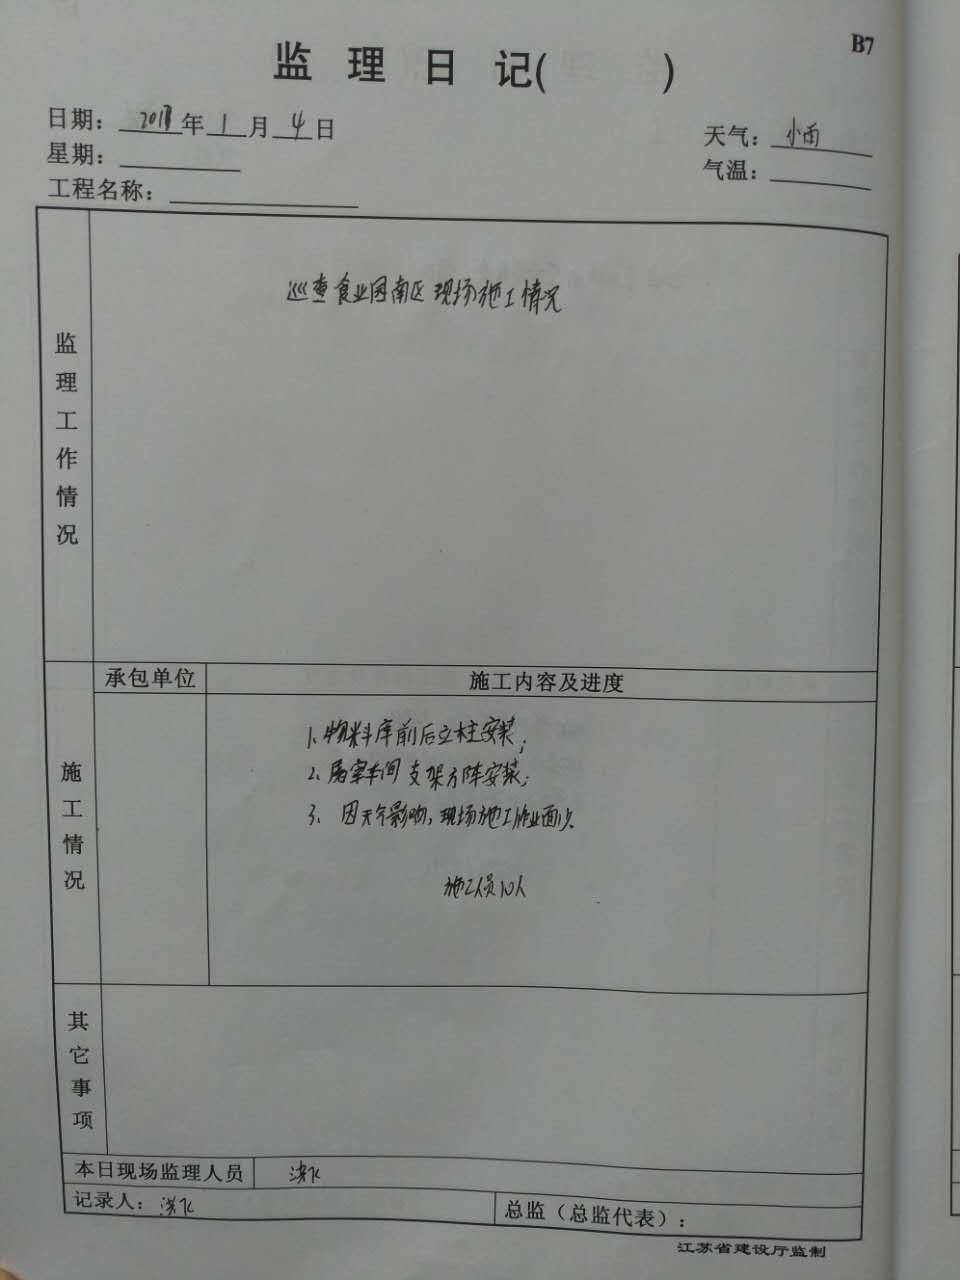 B7
监理日记( )
日期：2018年1月4日
天气：小雨
星期：
气温：
工程名称：
监理工作情况
巡查食业园南区现场施工情况
承包单位
施工内容及进度
施工情况
1、物料库前后立柱安装；
2、屠宰车间支架方阵安装；
3、因天气影响，现场施工作业面少。
施工人员10人
其它事项
本日现场监理人员
记录人：
总监（总监代表）：
江苏省建设厅监制